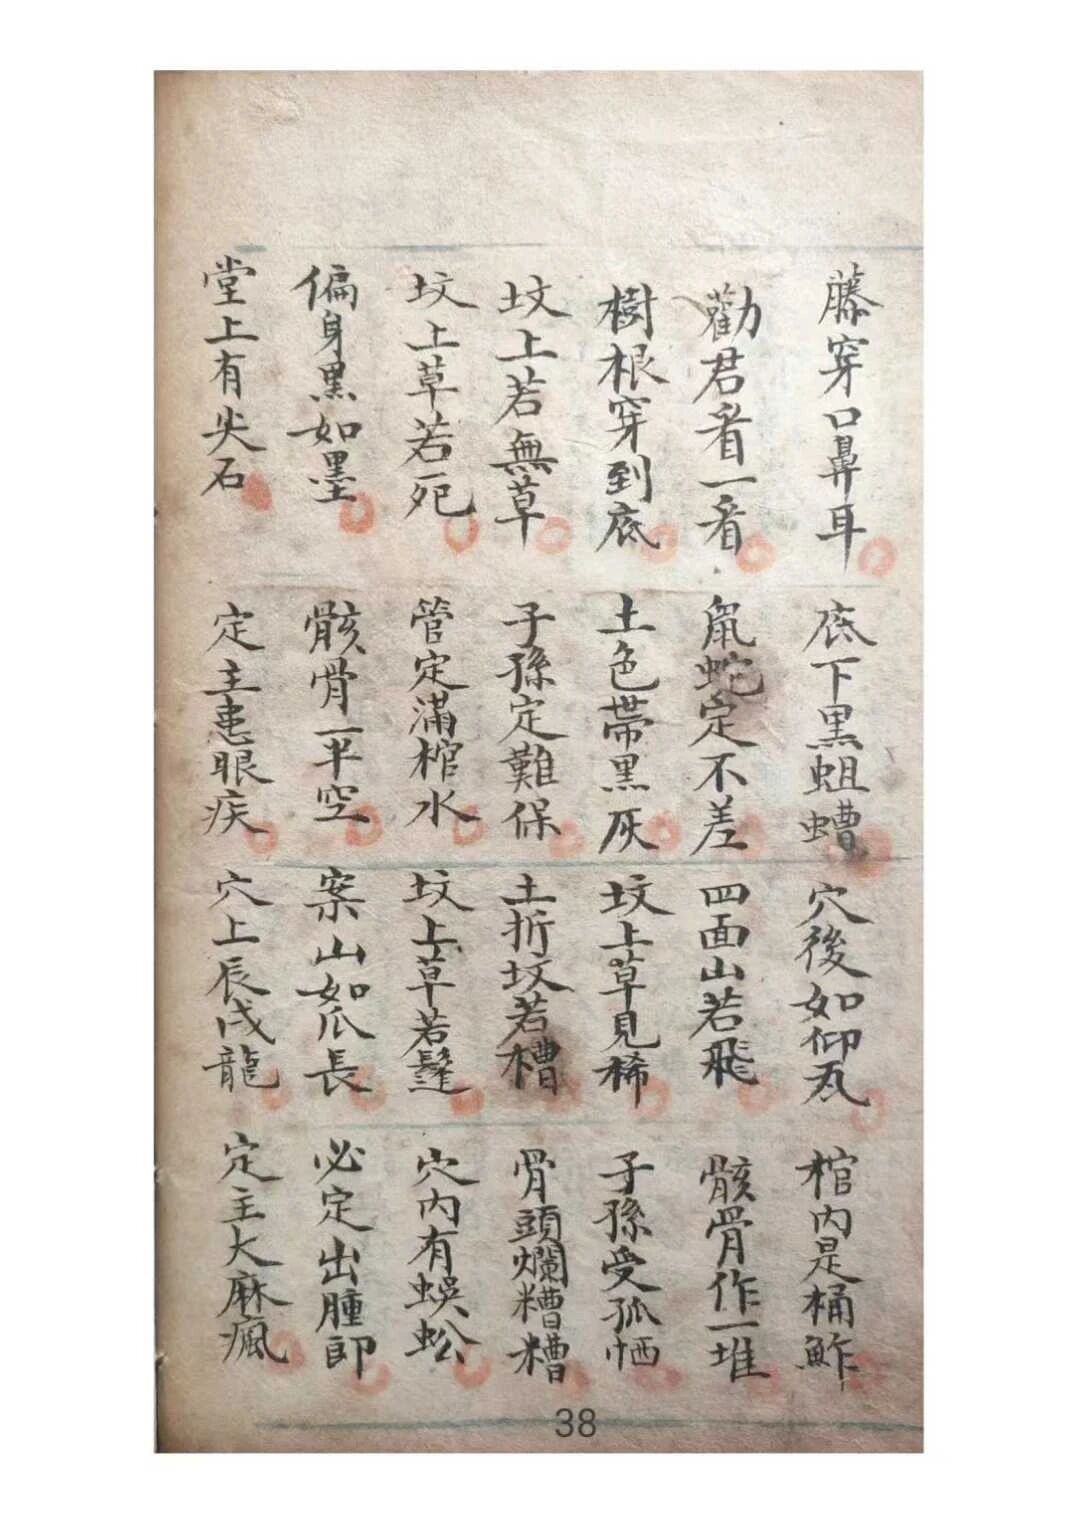 藤穿口鼻耳 底下黑蛆螬 穴後如仰瓦 棺内是桶鮓
勸君看一看 鼠蛇定不差 四面山若飛 骸骨作一堆
樹根穿到底 土色帶黑灰 坟上草見稀 子孫受孤恓
坟上若無草 子孫定難保 土折坟若槽 骨頭爛糟糟
坟上草若死 管定滿棺水 坟上草若鬆 穴内有蜈蚣
偏身黑如墨 骸骨一半空 案山如爪長 必定出腫郎
堂上有尖石 定主患眼疾 穴上辰戌龍 定主大麻瘋
38